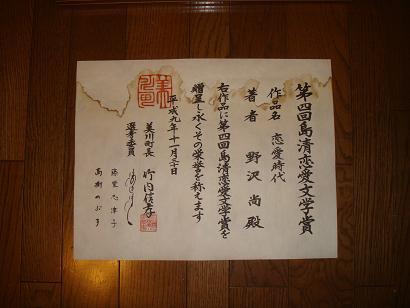 第四回島清恋愛文学賞
作品名 恋愛時代
著者 野沢尚殿
右作品に第四回島清恋愛文学賞を
贈呈し永くその栄誉を称えます
平成九年十一月三十日
美川町長 竹内信孝
選考委員
藤堂志津子
高樹のぶ子